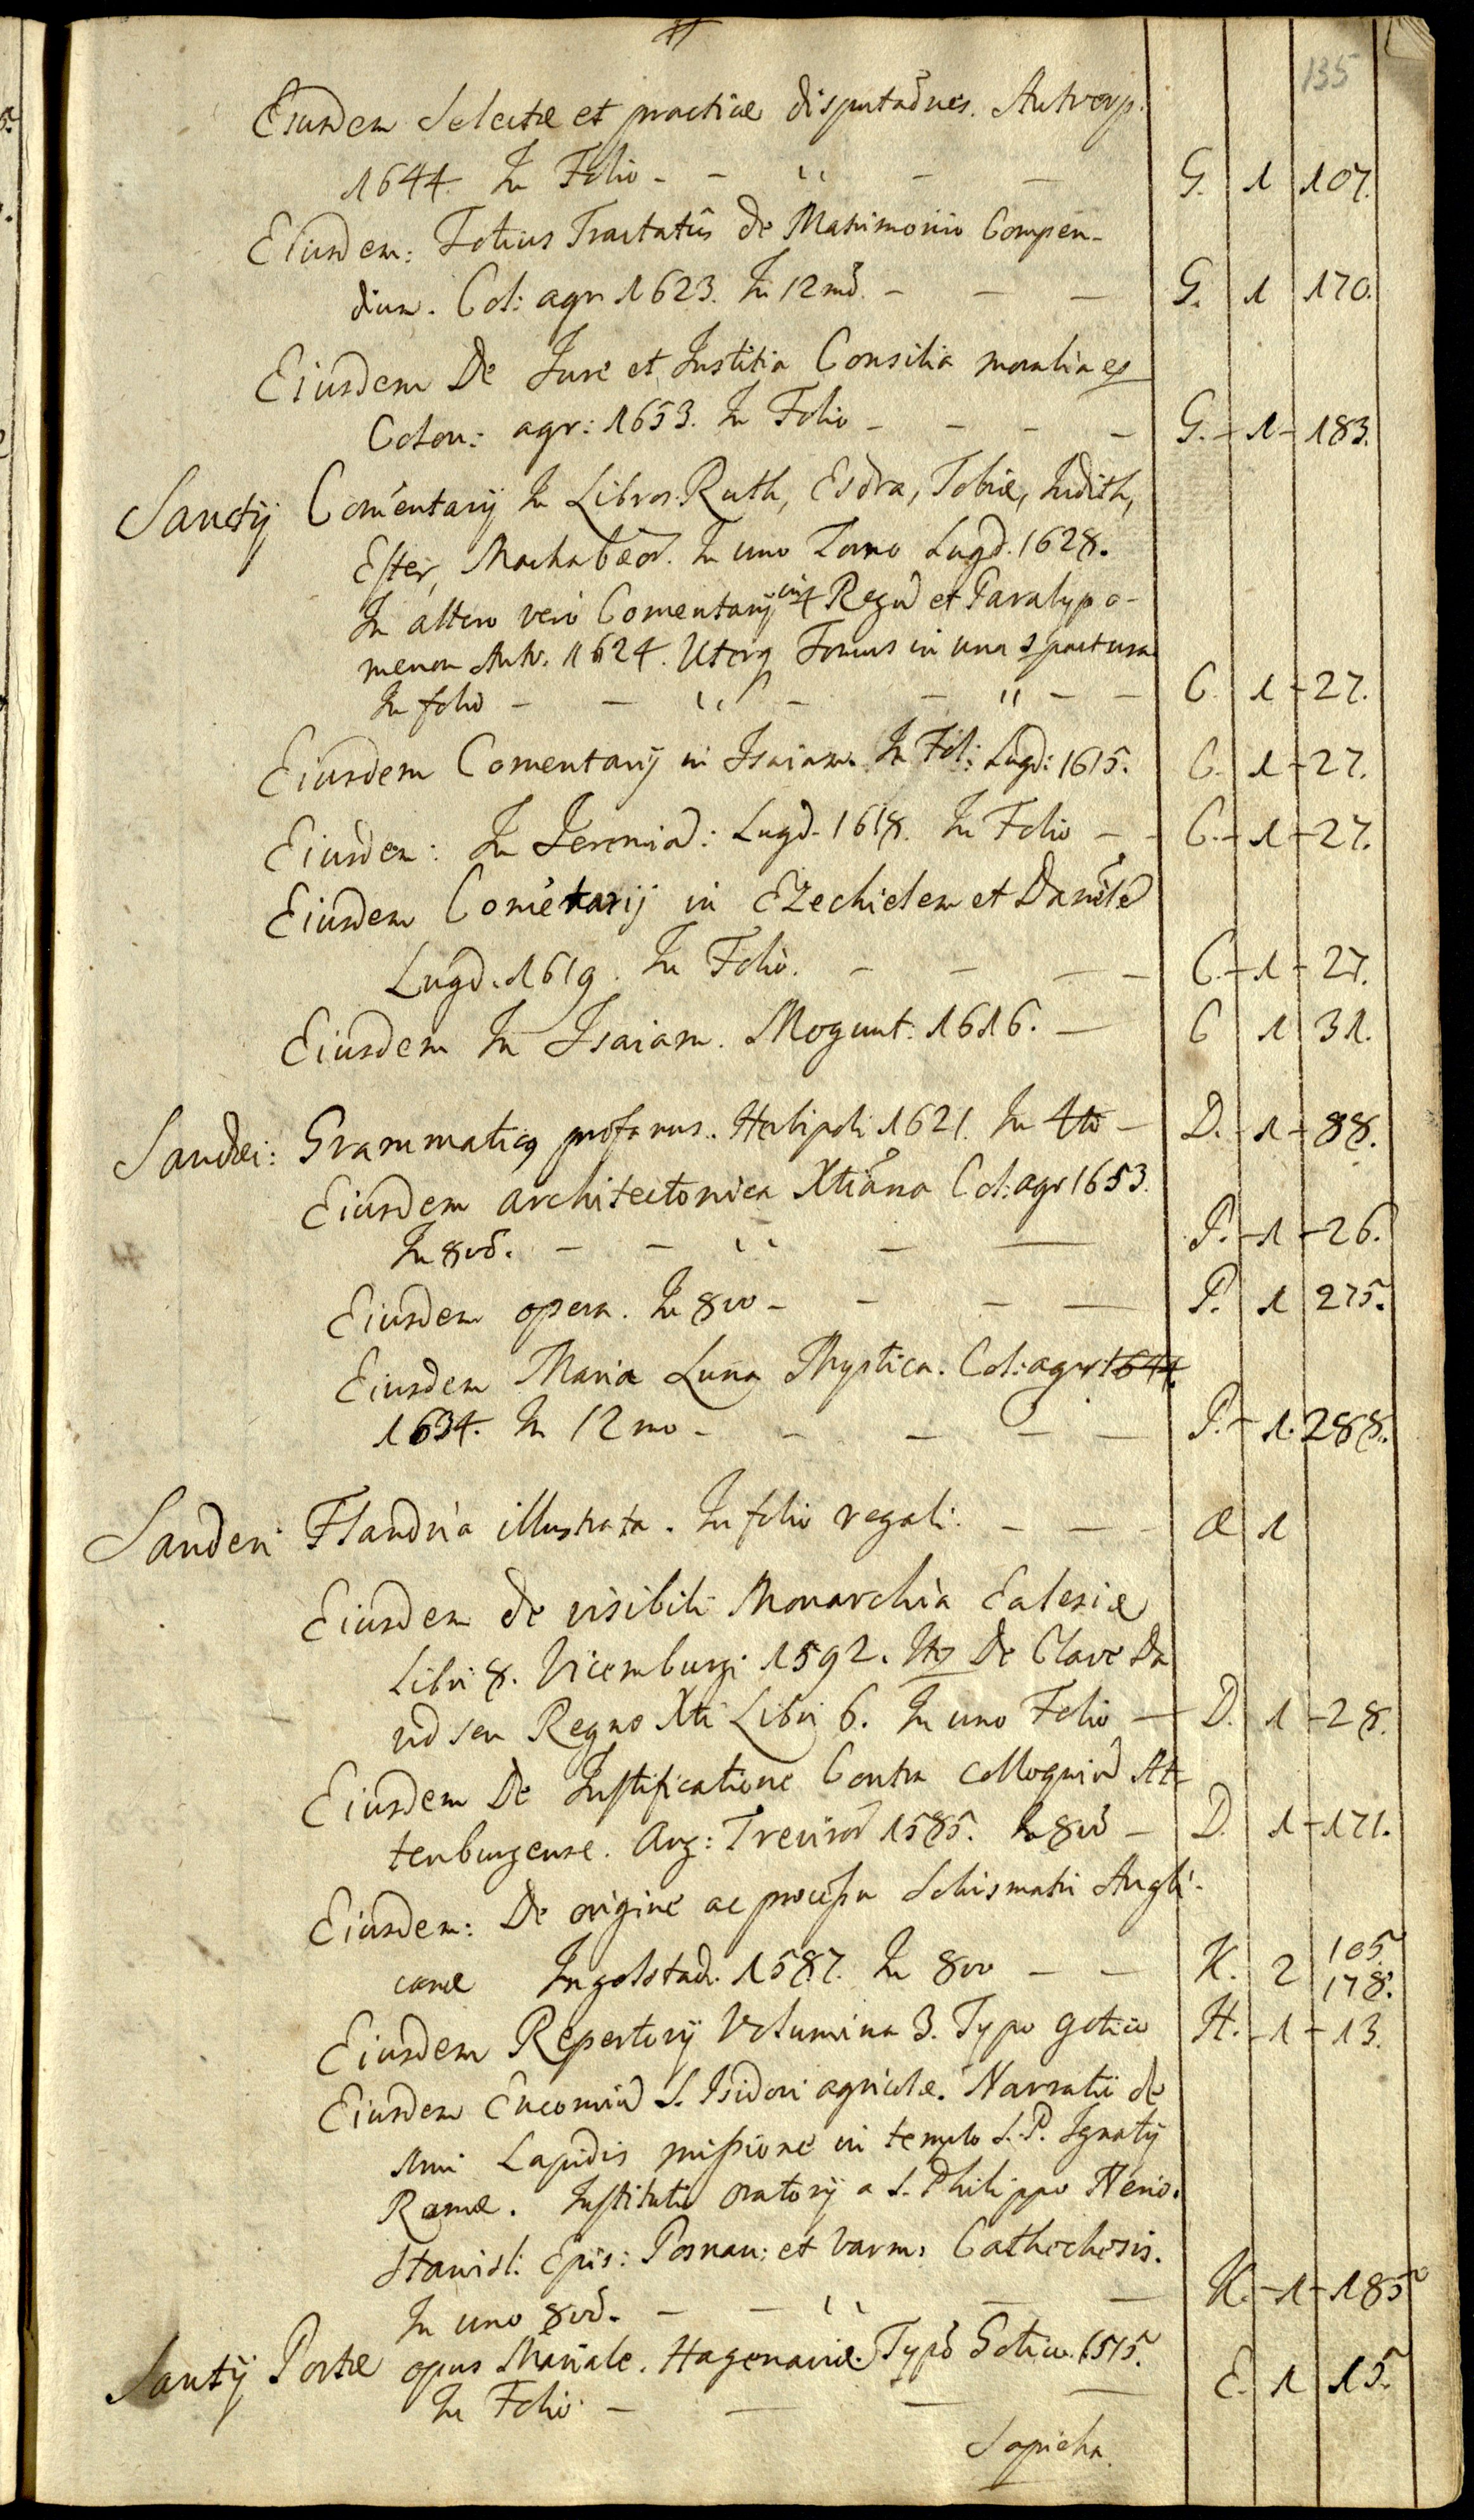 135
Eiusdem Selectæ et practicæ disputaões. Antverp.
1644. In Folio - - " - - G. 1 107.
Eiusdem: Totius Tractatus de Matrimonio Compen-
dium. Col: agr 1623. In 12mõ. - - - G. 1 170.
Eiusdem De Jure et Justitia Consilia moralia
Colon: agr: 1653. In Folio - - - - G. - 1 - 183.
Sanctij Comẽntarij In Libros Ruth, Esdra, Tobiæ, Judith,
Ester, Machabæor. In uno Tomo Lugd. 1628.
In altero vero Comentarij in 4 Regũ et Paralypo-
menon Antv. 1624. Uterq Tomus in una
In folio - - " - - " - - C. 1 - 27.
Eiusdem Comentarij in Isaiam. In Fol: Lugd: 1615. C. 1 - 27.
Eiusdem: In Jeremiã: Lugd. 1618. In Folio - - C. - 1 - 27.
Eiusdem Comẽtarij in Ezechielem et Daniel̃e
Lugd. 1619. In Folio. - - - - C. - 1 - 27.
Eiusdem In Isaiam. Mogunt. 1616. - C 1 31.
Sandæi: Grammaticq profanus. Herbipoli 1621. In 4to - D. - 1 - 88.
Eiusdem architectonica Xtiãna Col: agr 1653.
In 8võ. - - " - - P. - 1 - 26.
Eiusdem opera. In 8vo - - - - P. 1 275.
Eiusdem Maria Luna Mystica. Col: agr 1644.
1634. In 12mo - - - - - P. - 1. 288.
Sanderi Flandria illustrata. In folio regali. - - - Æ 1
Eiusdem de visibili Monarchia Eclesiæ
Libri 8. Vicemburgi 1592. Itq De Clave Da
vid seu Regno Xti Libri 6. In uno Folio - D. 1 - 28.
Eiusdem De Justificatione Contra colloquiũ Al-
tenburgense. Aug: Treviroř 1585. In 8võ - D. 1 - 171.
Eiusdem: De origine ac processu Schismatis Angli-
canæ Ingolstad. 1587. In 8vo - - K. 2 105
178.
Eiusdem Repertorij Volumina 3. Typo gotico H. - 1 - 13.
Eiusdem Encomiũ S. Isidori agricolæ. Narratii de
Lapidis missione in templo S. P. Ignatij
Romæ. Institutio Oratorij a S. Philippo Nerio.
Stanisl: Epis: Posnan: et Varm: Cathechesis.
In uno 8võ. - - " - - K. - 1 - 185
Santij Portæ opus Mariale. Hagenaviæ. Typõ Gotico. 1515.
In Folio - - - - E. 1 15.
Sapieha.